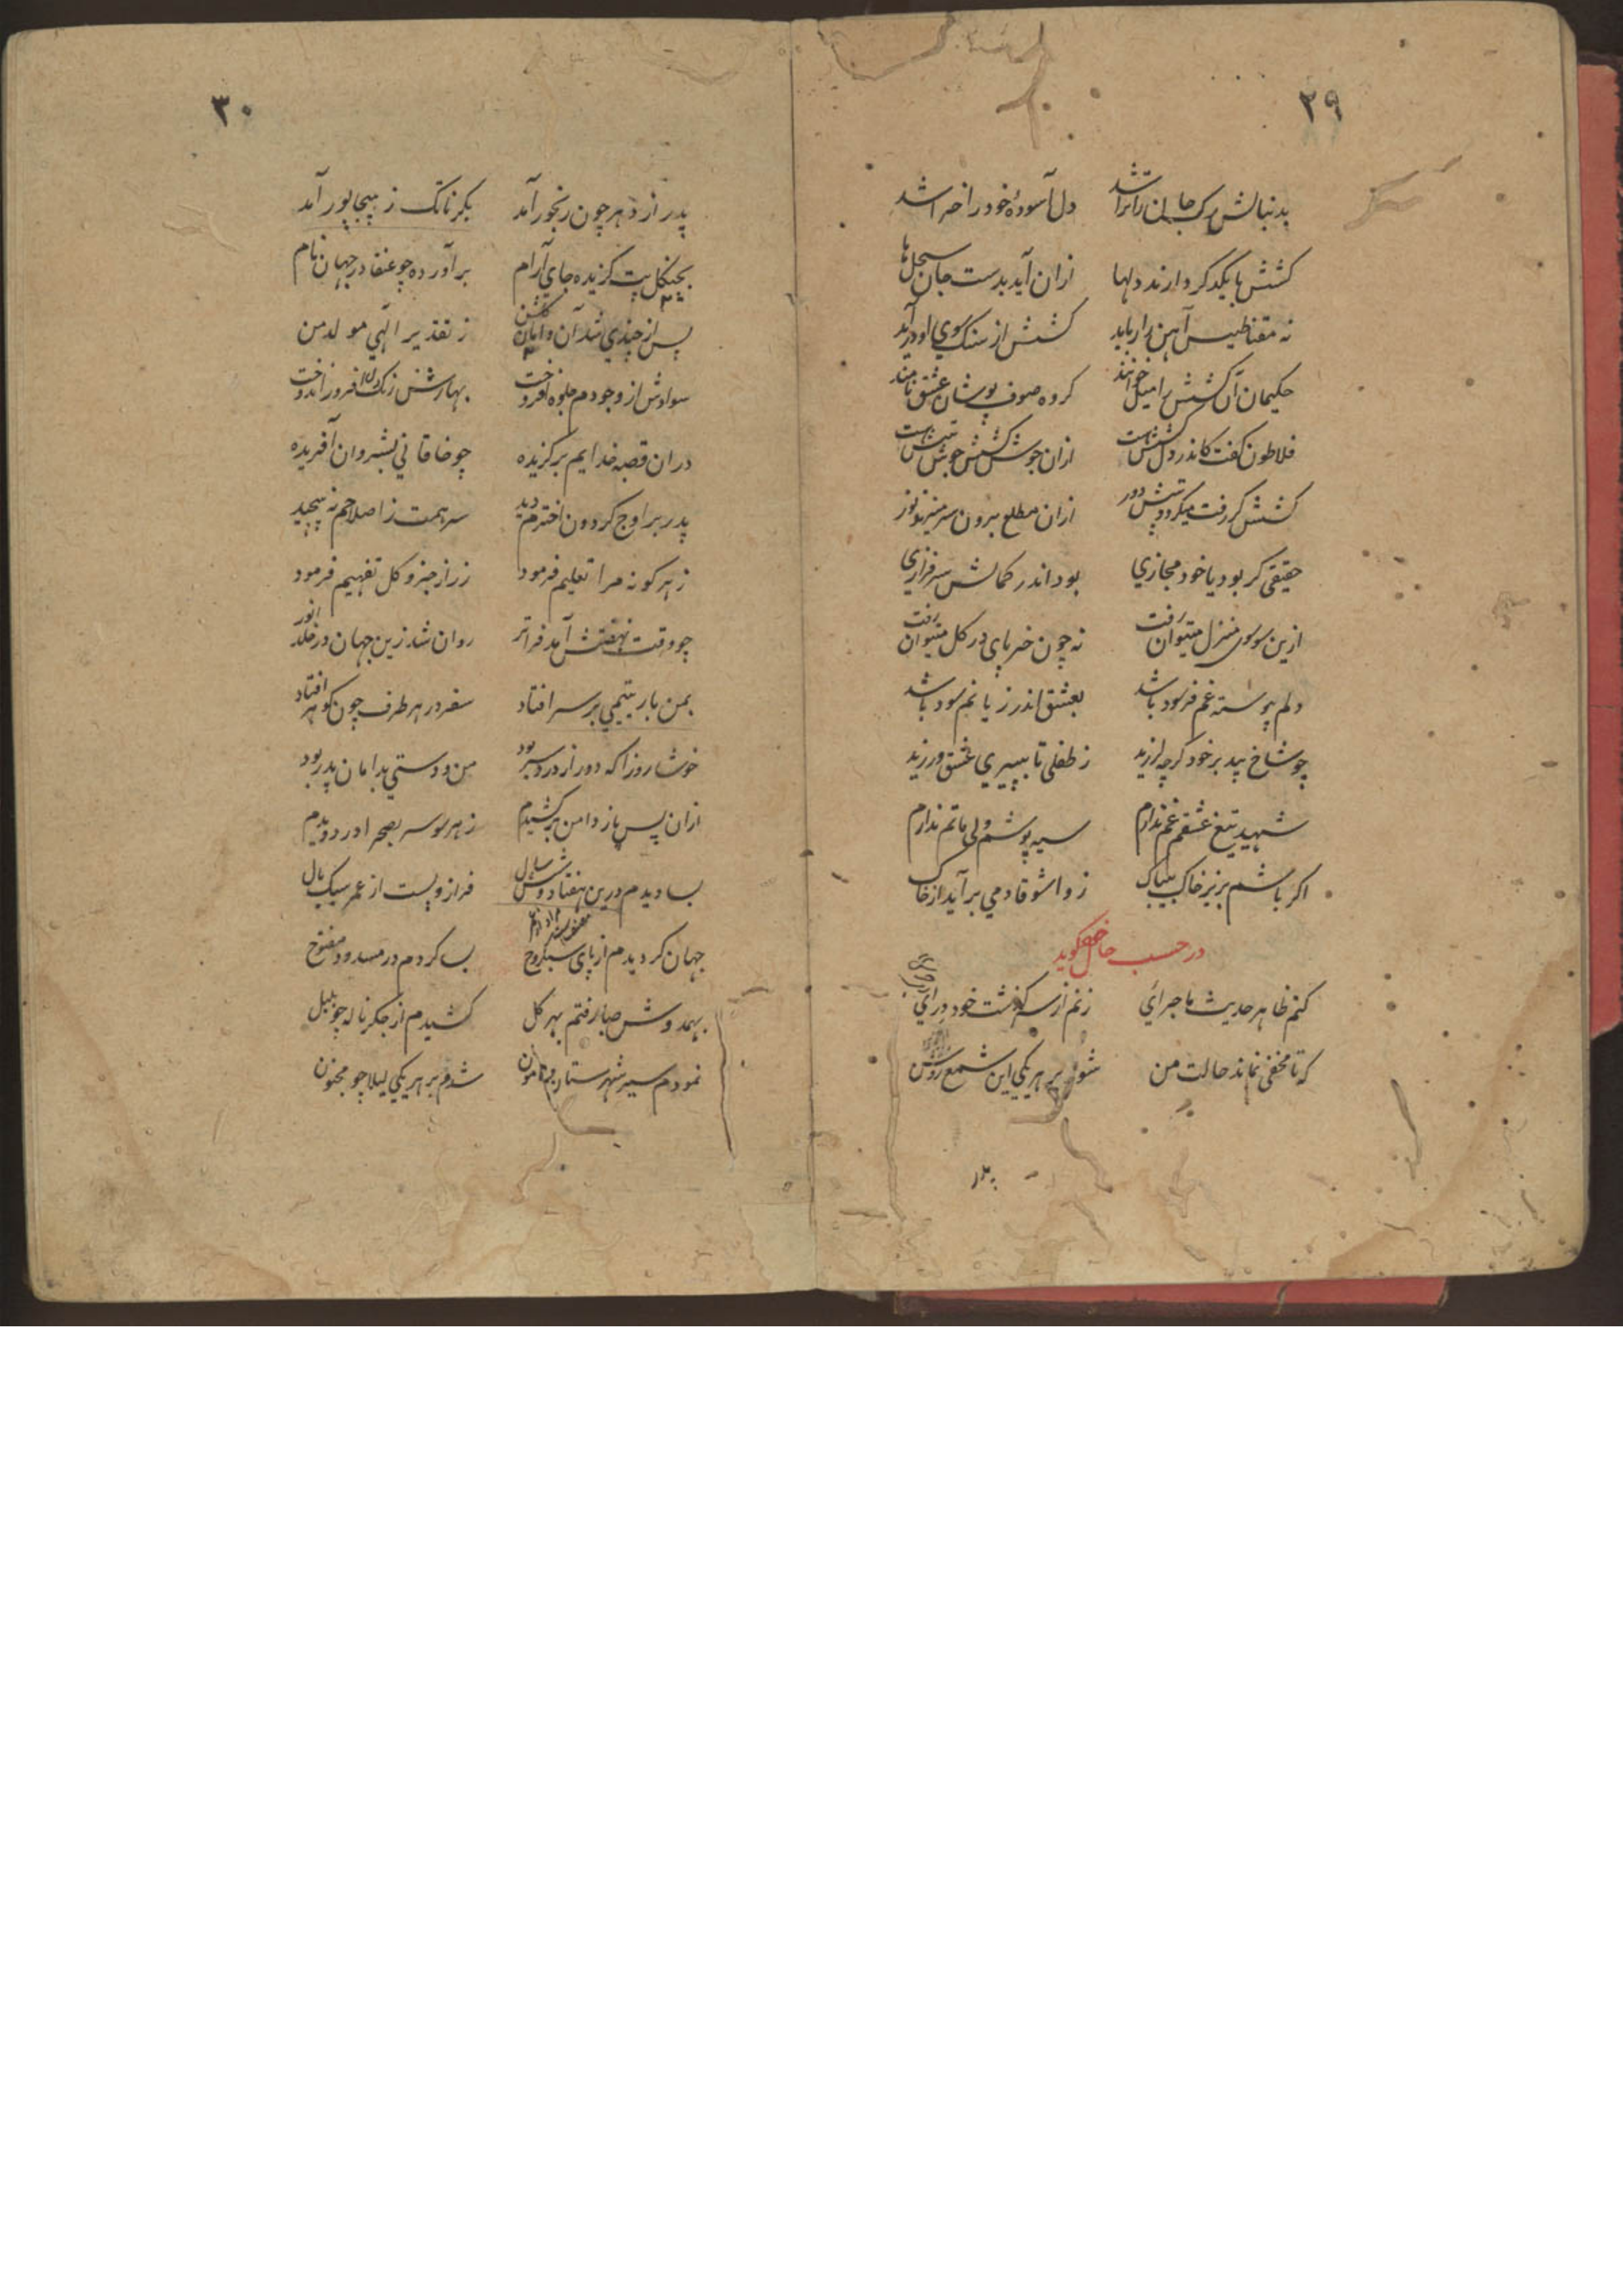 ٢٩
بدنبالش رک جان را تراشد دل آسودهٔ خود را خراشد
کشش با یکدکر دارند دلها ازان آید بدست جان سجل‌ها
نه مقناطیس آهن را رباید کشش از سنک سوی او درآید
حکیمان آن کشش را میل خوانند کروه صوف پوشان عشق نامند
فلاطون کفت کاندر دل کشش هست ازان جوش کشش جوش تپش هست
کشش کر رفت میکردد تپش دور ازان مطلع برون سر میزند نور
حقیقی کر بود یا خود مجازی بود اندر کمالش سرفرازی
ازین سو سوی منزل میتوان رفت نه چون خر پای در کل میتوان رفت
دلم پیوسته غم فرسود باشد بعشق اندر زیانم سود باشد
چو شاخ بید بر خود کرچه لرزید ز طفلی تا بپیری عشق ورزید
شهید تیغ عشقم غم ندارم سیه پوشم ولی ماتم ندارم
اکر باشم بزیر خاک بیباک ز واشوقا دمی برآید از خاک
در حسب حال خود کوید
کنم ظاهر حدیث ماجرائی زنم از سرکذشت خود درائی
که تا مخفی نماند حالت من شود بر هر یکی این شمع روشن
پدر
٣٠
پدر از دهر چون رنجور آمد بکرناتک ز بیجاپور آمد
بچنکل پت کزیده جای آرام برآورده چو عنقا در جهان نام
پس از چندی شد آن وامان کلشن ز تقدیر الهی مولد من
سوادش از وجودم جلوه افروخت بهارش زنک دل افروز اندوخت
دران قصبه خدایم برکزیده چو خاقانی بشروان آفریده
پدر بر اوج کردون اخترم دید سر همت ز اصلاحم نه پیچید
ز هر کونه مرا تعلیم فرمود ز راز جزو و کل تفهیم فرمود
چو وقت نهضتش آمد فراتر روان شد زین جهان در خلد انور
بمن بار یتیمی بر سر افتاد سفر در هر طرف چون کوهر افتاد
خوشا روزا که دور از درد سر بود من و دستی بدامان پدر بود
ازان پس باز دامن برکشیدم ز هر سو سر بصحرا در دویدم
بسا دیدم درین هفتاد و شش سال فراز و پست از عمر سبک بال
جهان کردیدم از پای سبکروح بسا کردم در مسدود مفتوح
بهمدوش صبا رفتم بهر کل کشیدم از جکر ناله چو بلبل
نمودم سیر شهرستان و هامون شدم بر هر یکی لیلا چو مجنون